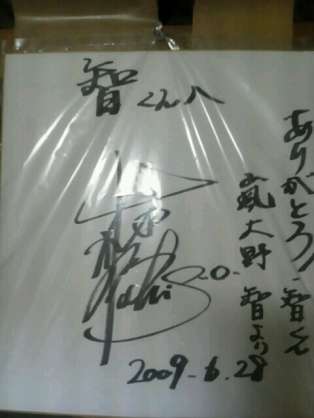 智くんへ
ありがとう!智くん
嵐大野智より
2009.6.28